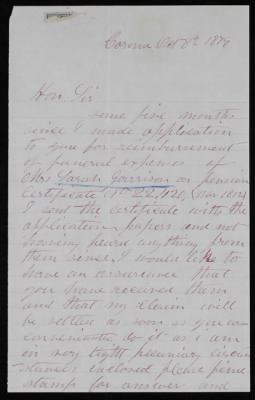 Corunna Oct 8th 1879
Hon. Sir
some five months
since I made application
to you for reimbursement
of funeral expenses of
Mrs Sarah Garrison on pension
Certificate No 22,420, (War 1812)
I sent the certificate with the
application papers and not
having heard anything from
them since, I would like to
have an assurance that
you have received them
and that my claim will
be settled as soon as you can
conveniently do it as I am
in very tight pecuniary circum
stances enclosed please find
stamps for answer and